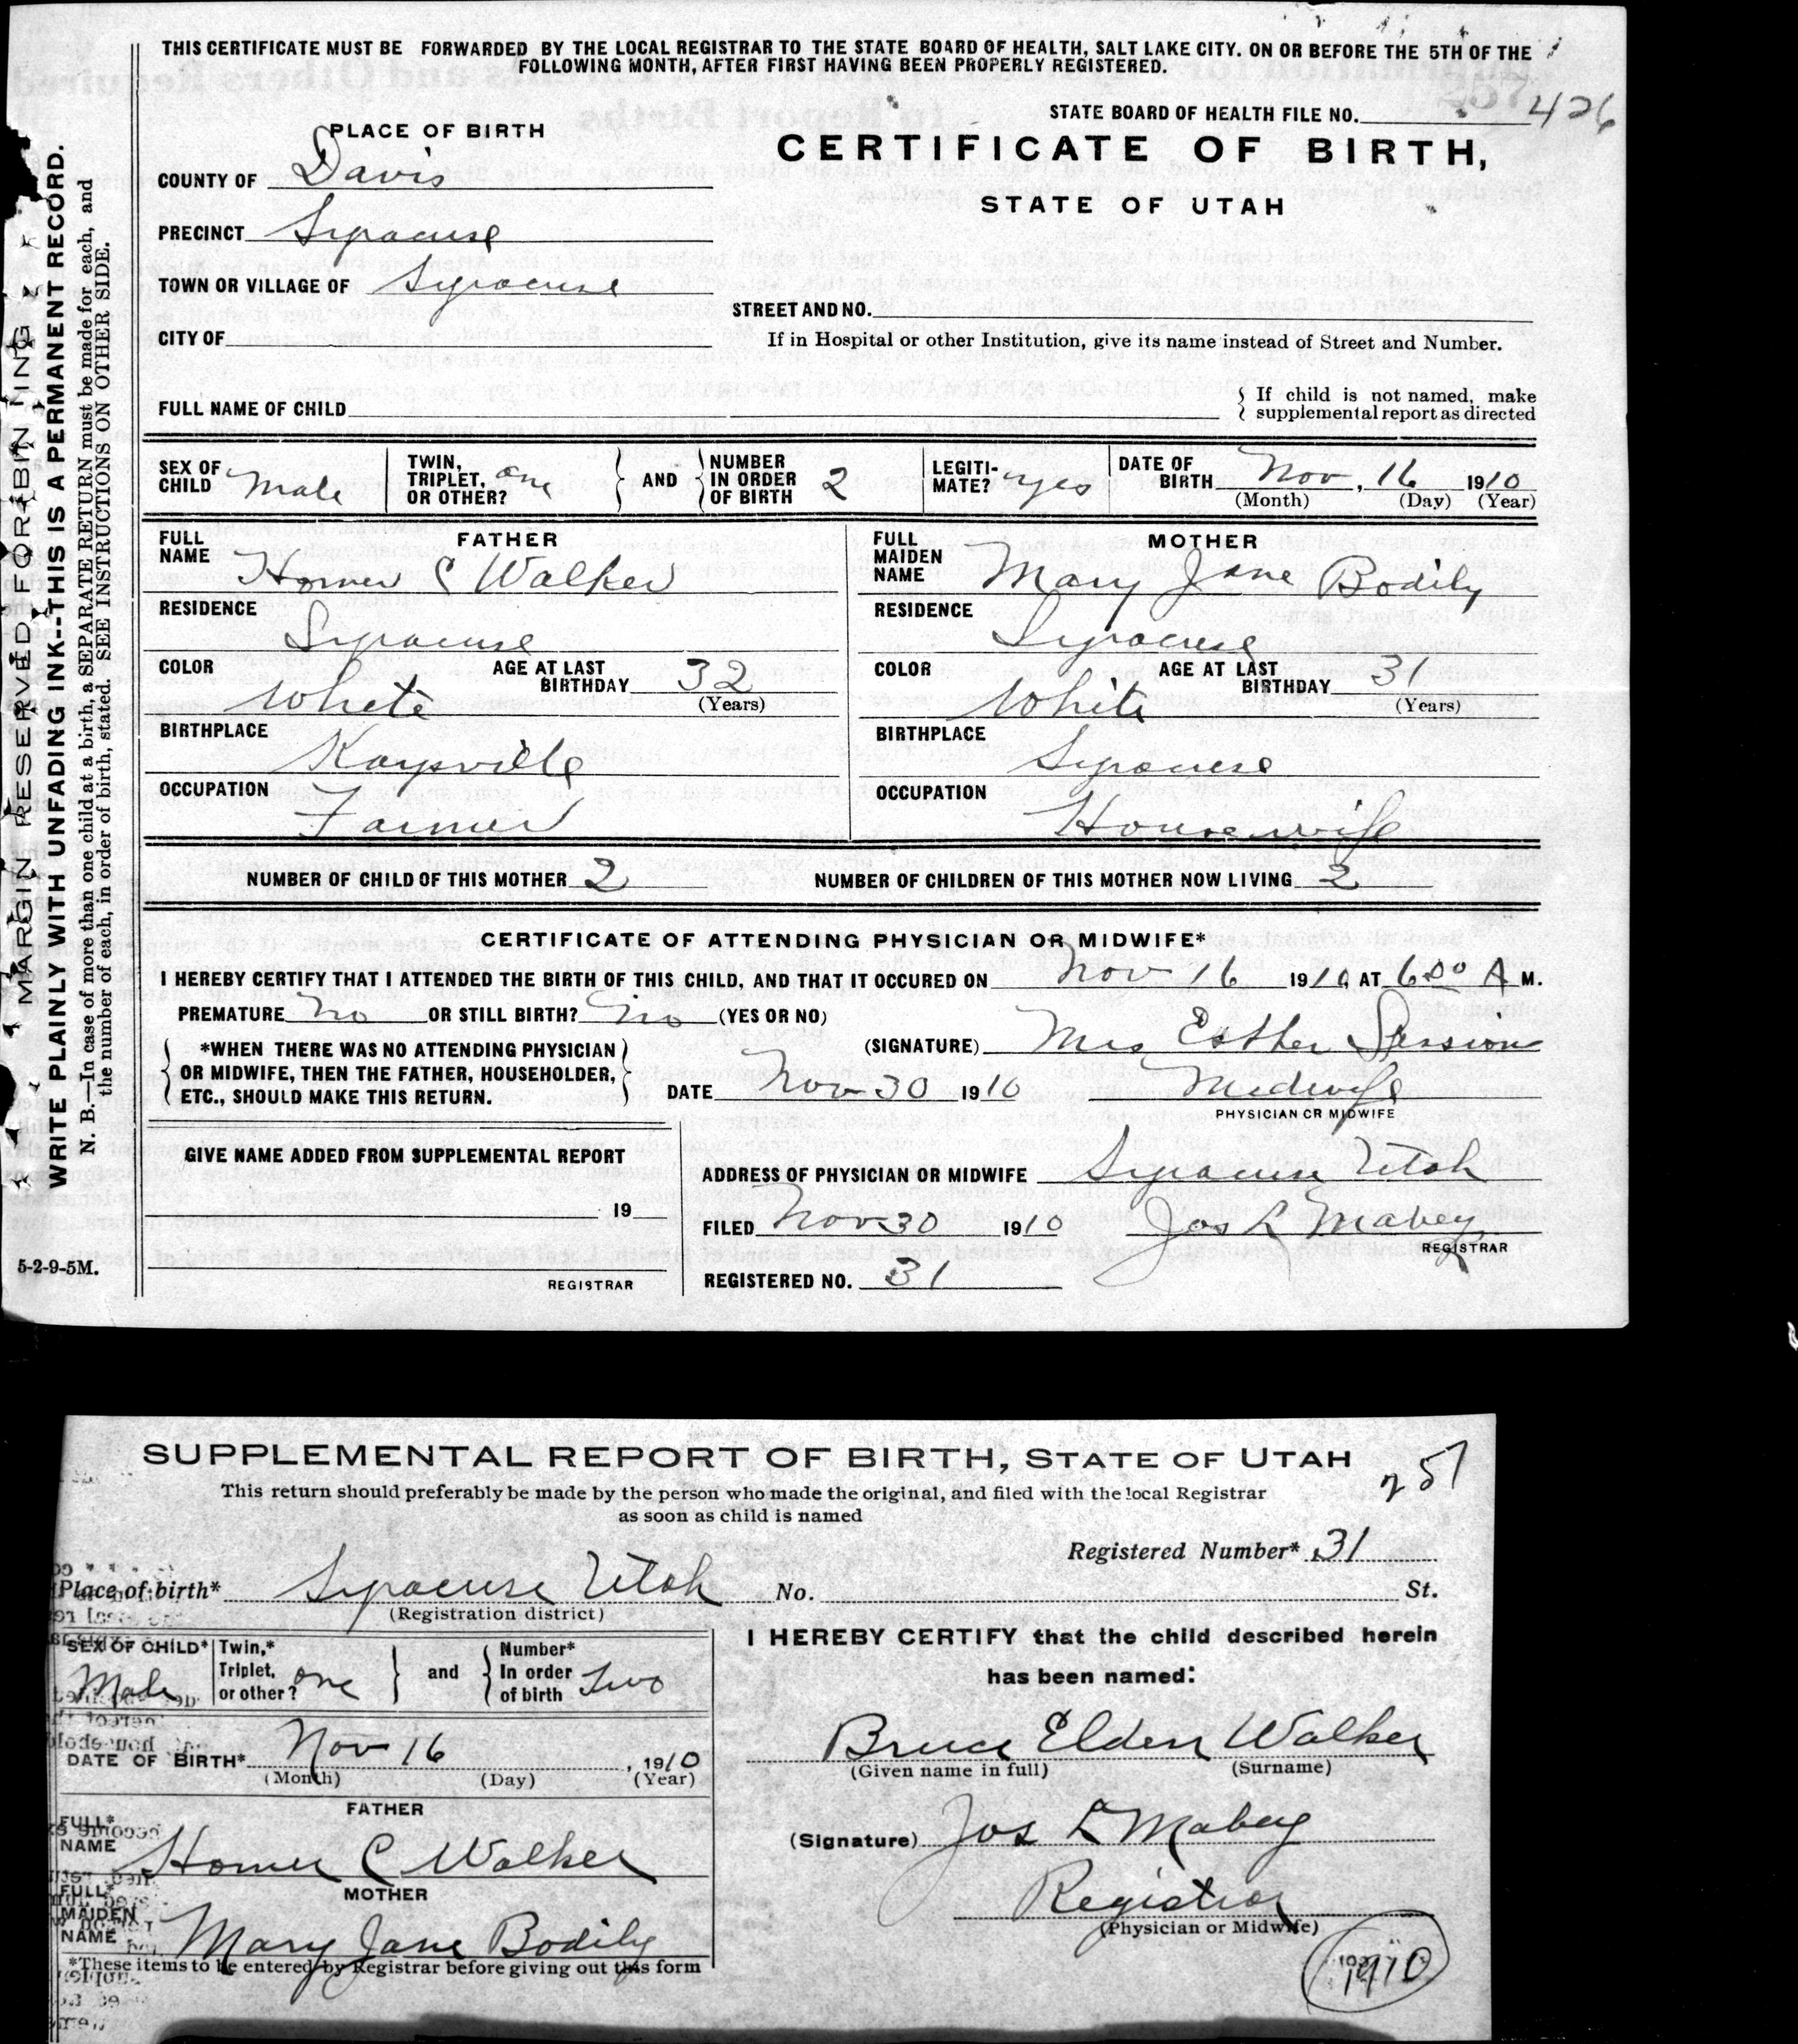 THIS CERTIFICATE MUST BE FORWARDED BY THE LOCAL REGISTRAR TO THE STATE BOARD OF HEALTH, SALT LAKE CITY. ON OR BEFORE THE 5TH OF THE
FOLLOWING MONTH, AFTER FIRST HAVING BEEN PROPERLY REGISTERED.
STATE BOARD OF HEALTH FILE NO. 426
PLACE OF BIRTH
CERTIFICATE OF BIRTH,
STATE OF UTAH
COUNTY OF Davis
PRECINCT Syracuse
TOWN OR VILLAGE OF Syracuse
STREET AND NO.
CITY OF
If in Hospital or other Institution, give its name instead of Street and Number.
FULL NAME OF CHILD
If child is not named, make
supplemental report as directed
SEX OF CHILD Male
TWIN, TRIPLET, OR OTHER? one
AND
NUMBER IN ORDER OF BIRTH 2
LEGITI-MATE? yes
DATE OF BIRTH Nov, 16 1910
(Month) (Day) (Year)
FATHER
FULL NAME Homer C Walker
RESIDENCE
Syracuse
COLOR White
AGE AT LAST BIRTHDAY 32
(Years)
BIRTHPLACE
Kaysville
OCCUPATION
Farmer
MOTHER
FULL MAIDEN NAME Mary Jane Bodily
RESIDENCE
Syracuse
COLOR White
AGE AT LAST BIRTHDAY 31
(Years)
BIRTHPLACE
Syracuse
OCCUPATION
Housewife
NUMBER OF CHILD OF THIS MOTHER 2 NUMBER OF CHILDREN OF THIS MOTHER NOW LIVING 2
CERTIFICATE OF ATTENDING PHYSICIAN OR MIDWIFE*
I HEREBY CERTIFY THAT I ATTENDED THE BIRTH OF THIS CHILD, AND THAT IT OCCURED ON Nov 16 1910, AT 6 00 A M.
PREMATURE No OR STILL BIRTH? No (YES OR NO)
*WHEN THERE WAS NO ATTENDING PHYSICIAN
OR MIDWIFE, THEN THE FATHER, HOUSEHOLDER,
ETC., SHOULD MAKE THIS RETURN.
(SIGNATURE) Mrs Esther Session
DATE Nov 30 1910 Midwife
PHYSICIAN OR MIDWIFE
GIVE NAME ADDED FROM SUPPLEMENTAL REPORT
19
REGISTRAR
ADDRESS OF PHYSICIAN OR MIDWIFE Syracuse Utah
FILED Nov 30 1910 Jos L Mabey
REGISTRAR
REGISTERED NO. 31
5-2-9-5M.
MARGIN RESERVED FOR BINDING
WRITE PLAINLY WITH UNFADING INK--THIS IS A PERMANENT RECORD.
N. B.—In case of more than one child at a birth, a SEPARATE RETURN must be made for each, and
the number of each, in order of birth, stated. SEE INSTRUCTIONS ON OTHER SIDE.
SUPPLEMENTAL REPORT OF BIRTH, STATE OF UTAH
257
This return should preferably be made by the person who made the original, and filed with the local Registrar
as soon as child is named
Registered Number* 31
Place of birth* Syracuse Utah No. St.
(Registration district)
SEX OF CHILD* Male
Twin,* Triplet, or other? one
and
Number* In order of birth Two
DATE OF BIRTH* Nov 16, 1910
(Month) (Day) (Year)
FATHER
FULL* NAME Homer C Walker
MOTHER
FULL* MAIDEN NAME Mary Jane Bodily
*These items to be entered by Registrar before giving out this form
I HEREBY CERTIFY that the child described herein
has been named:
Bruce Elden Walker
(Given name in full) (Surname)
(Signature) Jos L Mabey
Registrar
(Physician or Midwife)
1910